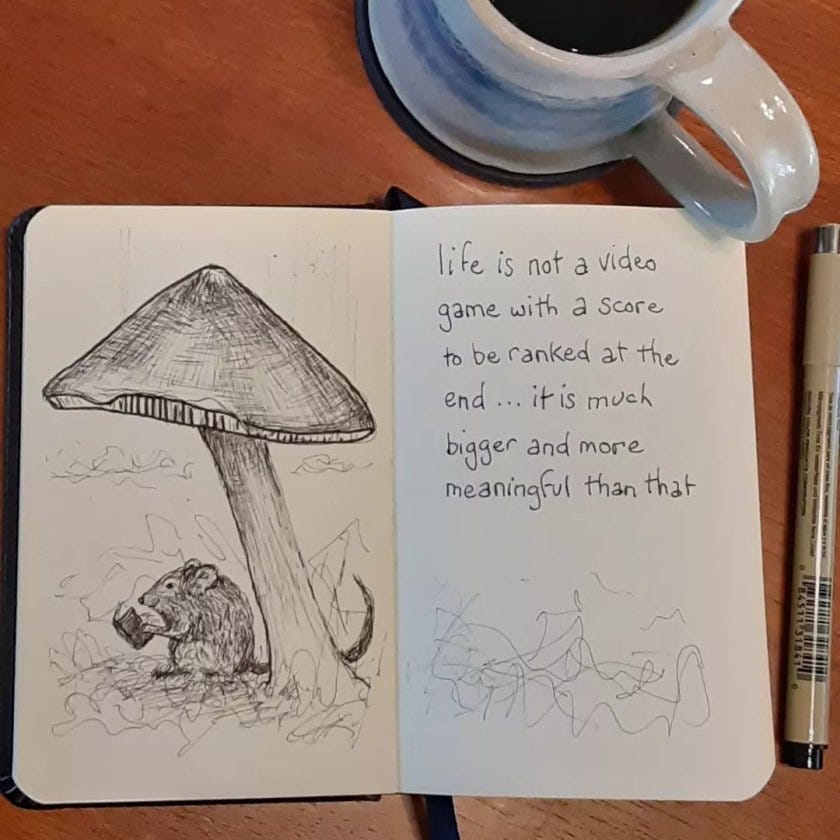 life is not a video
game with a score
to be ranked at the
end ... it is much
bigger and more
meaningful than that